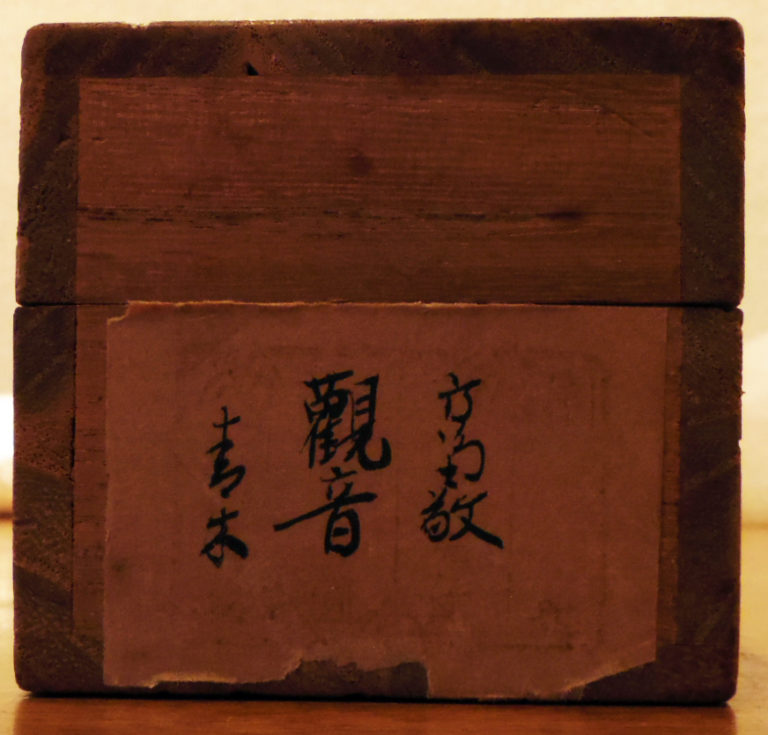 敬
觀音
青木